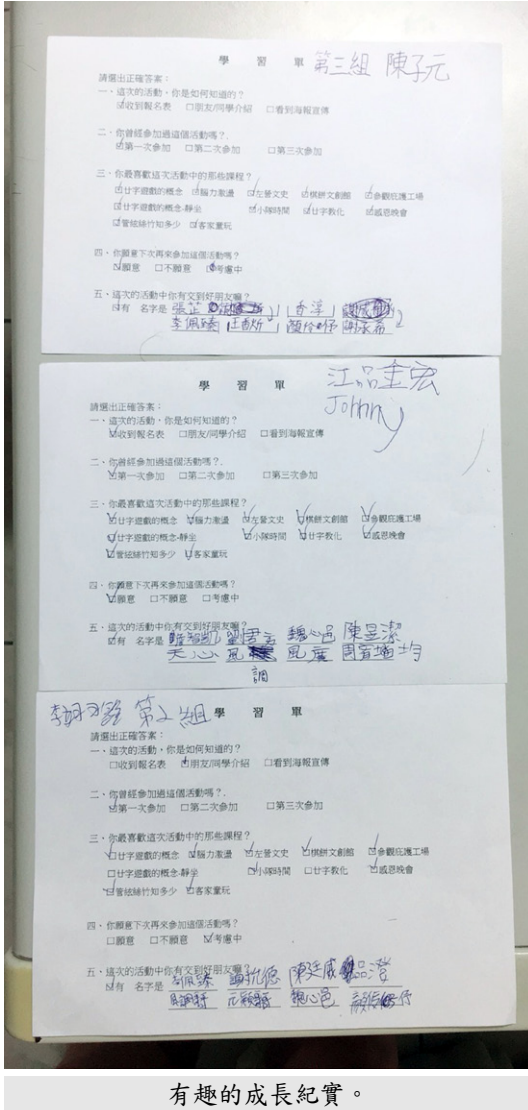 學 習 單 第三組 陳子元
請選出正確答案：
一、這次的活動，你是如何知道的？
☑收到報名表 □朋友/同學介紹 □看到海報宣傳
二、你曾經參加過這個活動嗎？.
☑第一次參加 □第二次參加 □第三次參加
三、你最喜歡這次活動中的那些課程？
☑廿字遊戲的概念 ☑腦力激盪 ☑左營文史 ☑棋餅文創館 ☑參觀庇護工場
☑廿字遊戲的概念-靜坐 ☑小隊時間 ☑廿字教化 ☑感恩晚會
☑管絃絲竹知多少 ☑客家童玩
四、你願意下次再來參加這個活動嗎？
☑願意 □不願意 考慮中
五、這次的活動中你有交到好朋友嗎？
☑有 名字是 張芷 香淳
李佩臻
學 習 單 江品宏
Johnny
請選出正確答案：
一、這次的活動，你是如何知道的？
☑收到報名表 □朋友/同學介紹 □看到海報宣傳
二、你曾經參加過這個活動嗎？.
☑第一次參加 □第二次參加 □第三次參加
三、你最喜歡這次活動中的那些課程？
☑廿字遊戲的概念 ☑腦力激盪 ☑左營文史 ☑棋餅文創館 ☑參觀庇護工場
☑廿字遊戲的概念-靜坐 ☑小隊時間 ☑廿字教化 ☑感恩晚會
☑管絃絲竹知多少 ☑客家童玩
四、你願意下次再來參加這個活動嗎？
☑願意 □不願意 □考慮中
五、這次的活動中你有交到好朋友嗎？
☑有 名字是 魏心邑 陳昱潔
天心 風 風度
調
第2組 學 習 單
請選出正確答案：
一、這次的活動，你是如何知道的？
□收到報名表 ☑朋友/同學介紹 □看到海報宣傳
二、你曾經參加過這個活動嗎？.
☑第一次參加 □第二次參加 □第三次參加
三、你最喜歡這次活動中的那些課程？
☑廿字遊戲的概念 ☑腦力激盪 ☑左營文史 ☑棋餅文創館 ☑參觀庇護工場
□廿字遊戲的概念-靜坐 ☑小隊時間 □廿字教化 ☑感恩晚會
☑管絃絲竹知多少 ☑客家童玩
四、你願意下次再來參加這個活動嗎？
□願意 □不願意 ☑考慮中
五、這次的活動中你有交到好朋友嗎？
☑有 名字是 陳廷威 品澄
魏心邑
有趣的成長紀實。